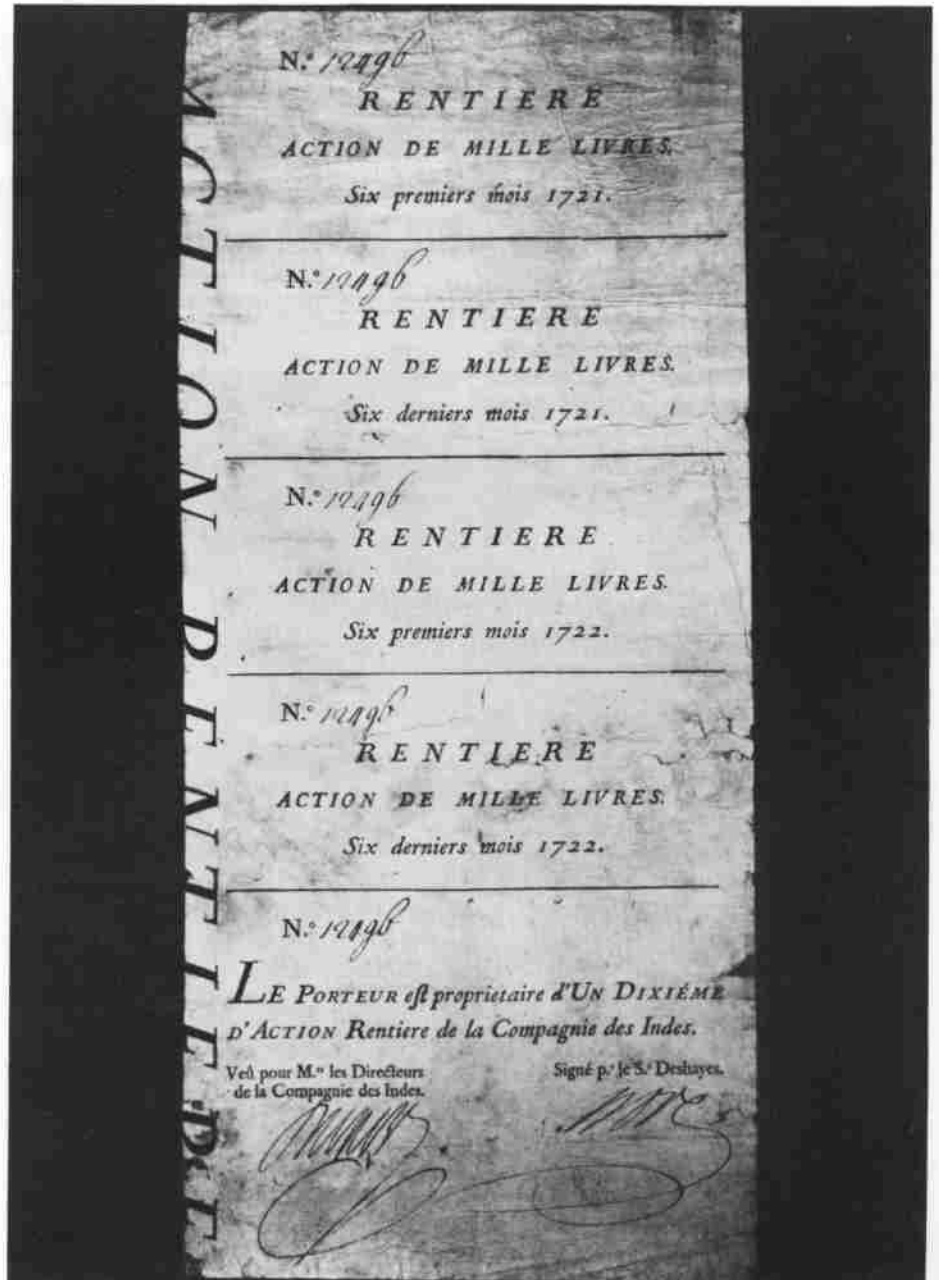 N.º 12496
RENTIERE
ACTION DE MILLE LIVRES.
Six premiers mois 1721.
N.º 12496
RENTIERE
ACTION DE MILLE LIVRES.
Six derniers mois 1721.
N.º 12496
RENTIERE
ACTION DE MILLE LIVRES.
Six premiers mois 1722.
N.º 12496
RENTIERE
ACTION DE MILLE LIVRES.
Six derniers mois 1722.
N.º 12496
LE PORTEUR eſt proprietaire d'UN DIXIÉME
D'ACTION Rentiere de la Compagnie des Indes.
Veû pour M.rs les Directeurs
de la Compagnie des Indes.
Signé p.r le S.r Deshayes.
ACTION RENTIERE